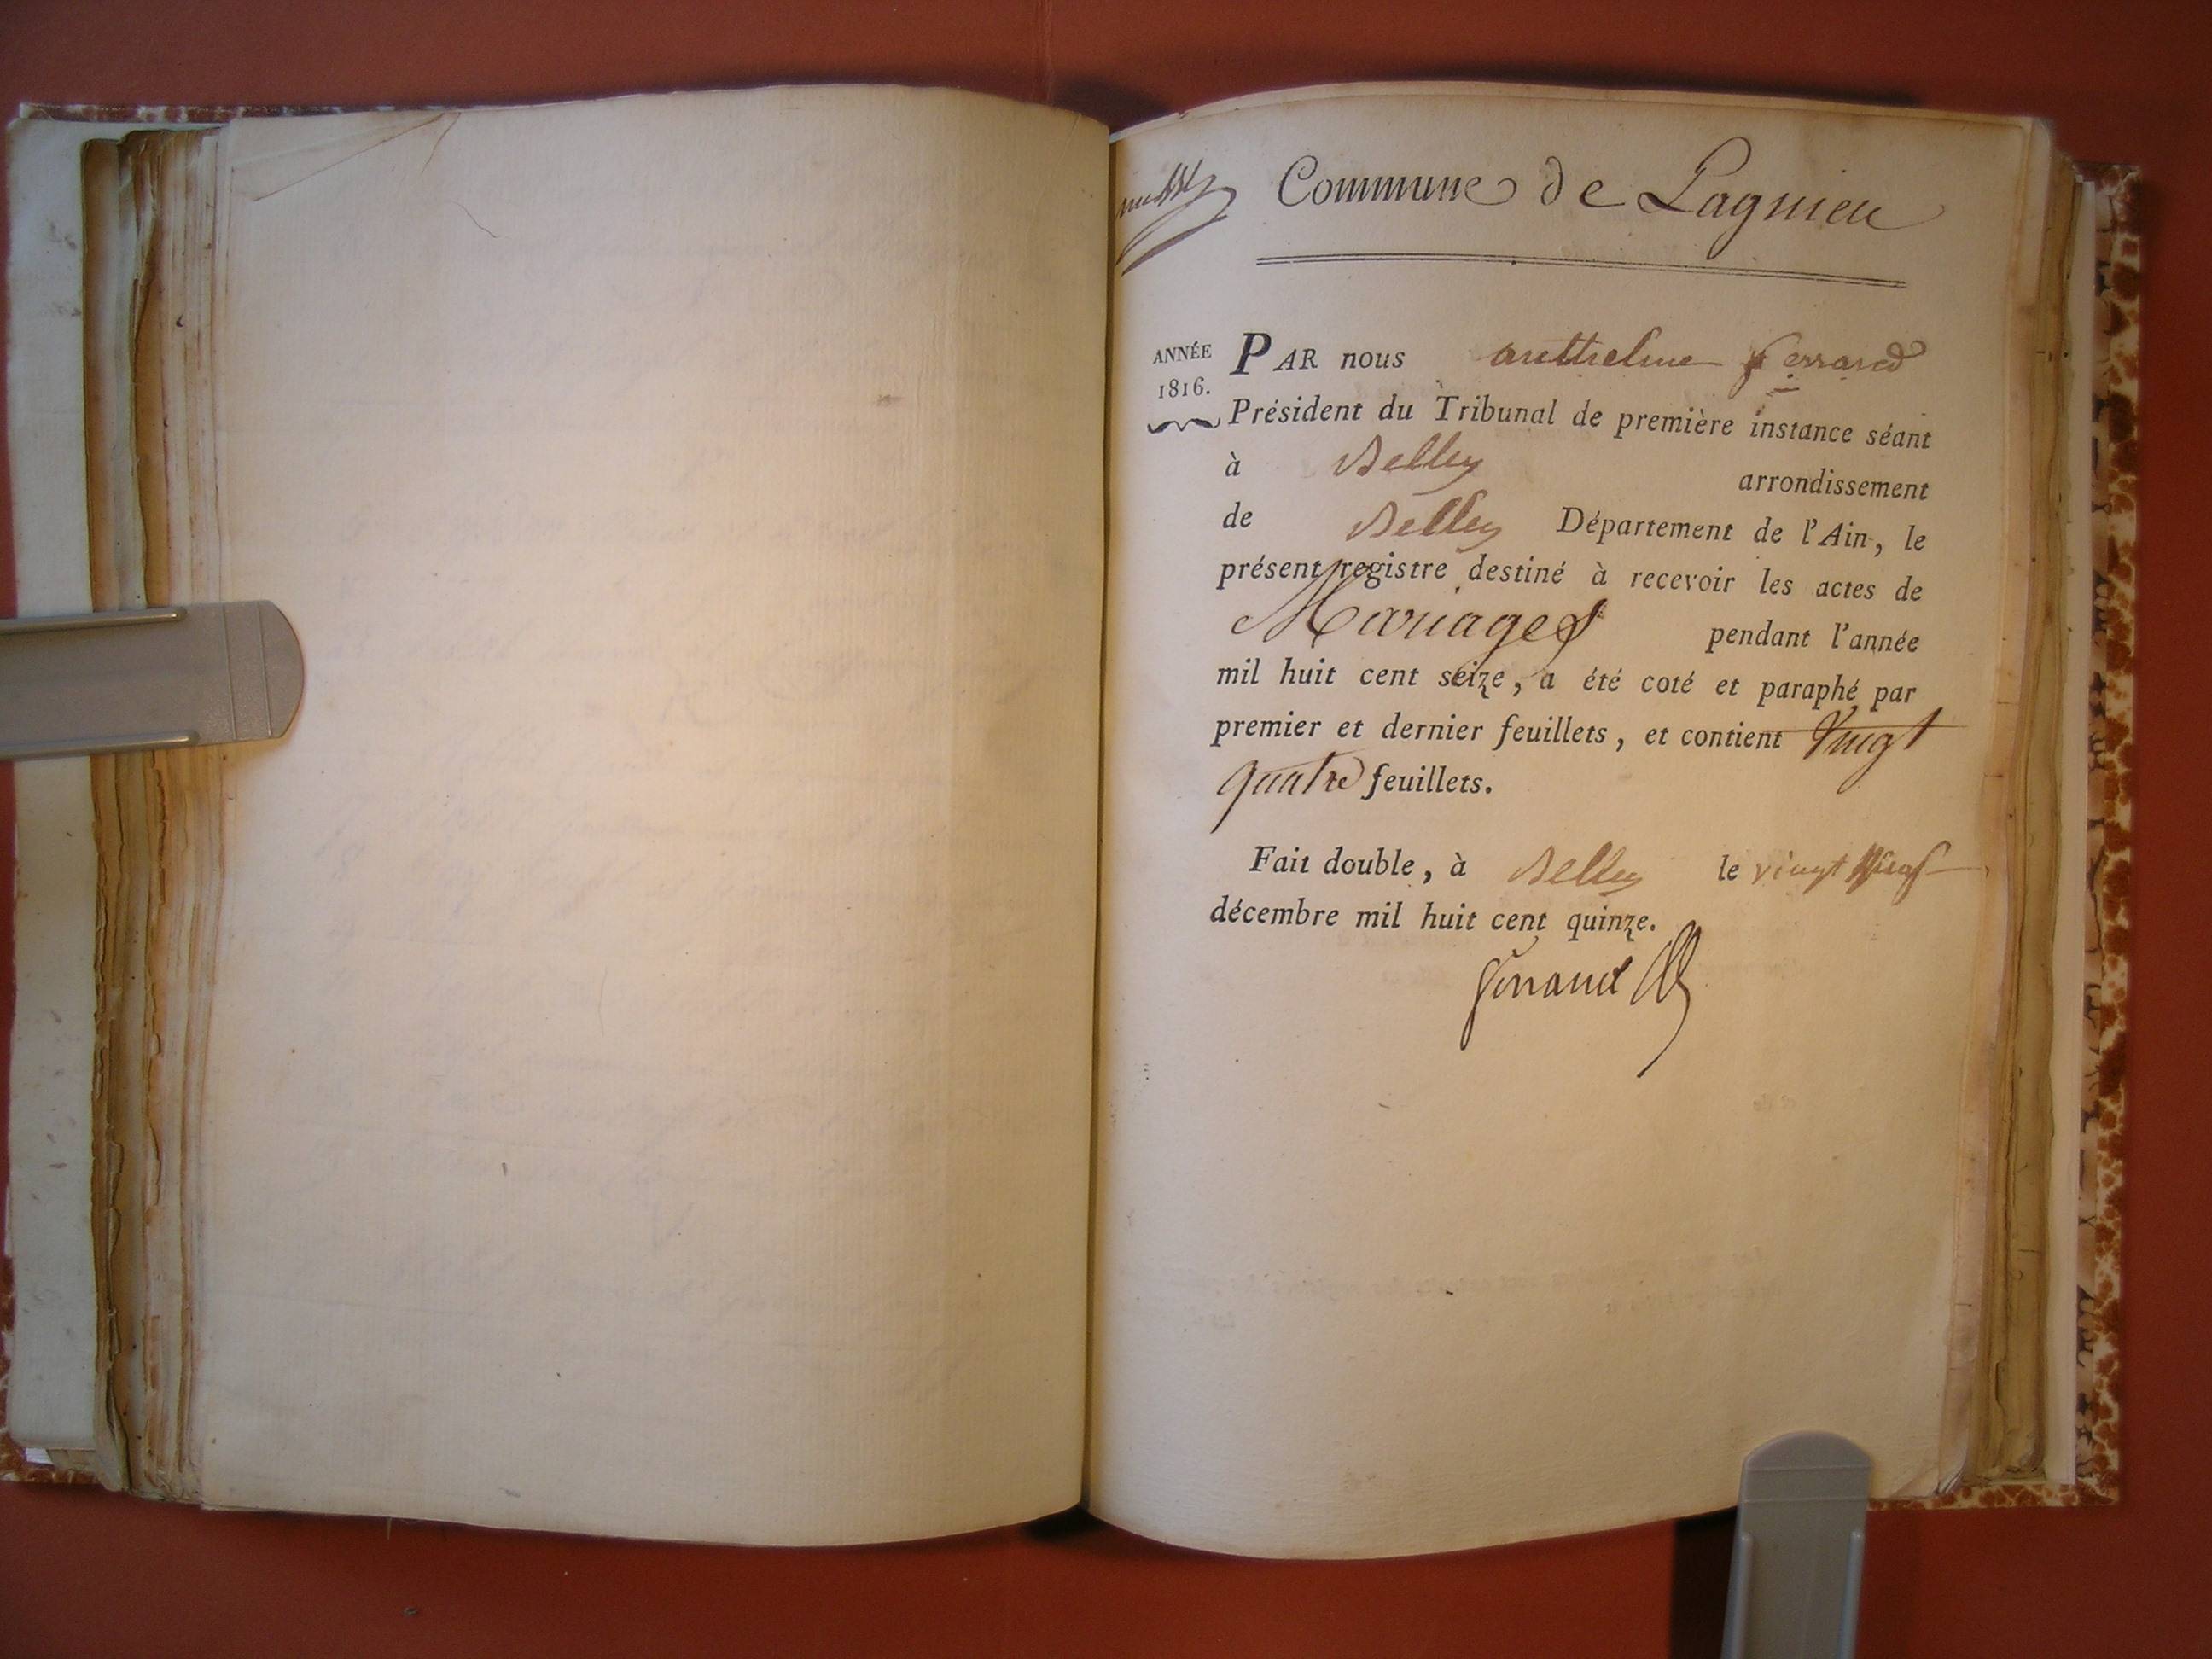 Commune de Lagnieu
ANNÉE
1816.
PAR nous anthelme ferrand
Président du Tribunal de première instance séant
à Belley arrondissement
de Belley Département de l'Ain, le
présent registre destiné à recevoir les actes de
Mariages pendant l'année
mil huit cent seize, a été coté et paraphé par
premier et dernier feuillets, et contient Vingt
quatre feuillets.
Fait double, à Belley le vingt neuf
décembre mil huit cent quinze.
ferrand